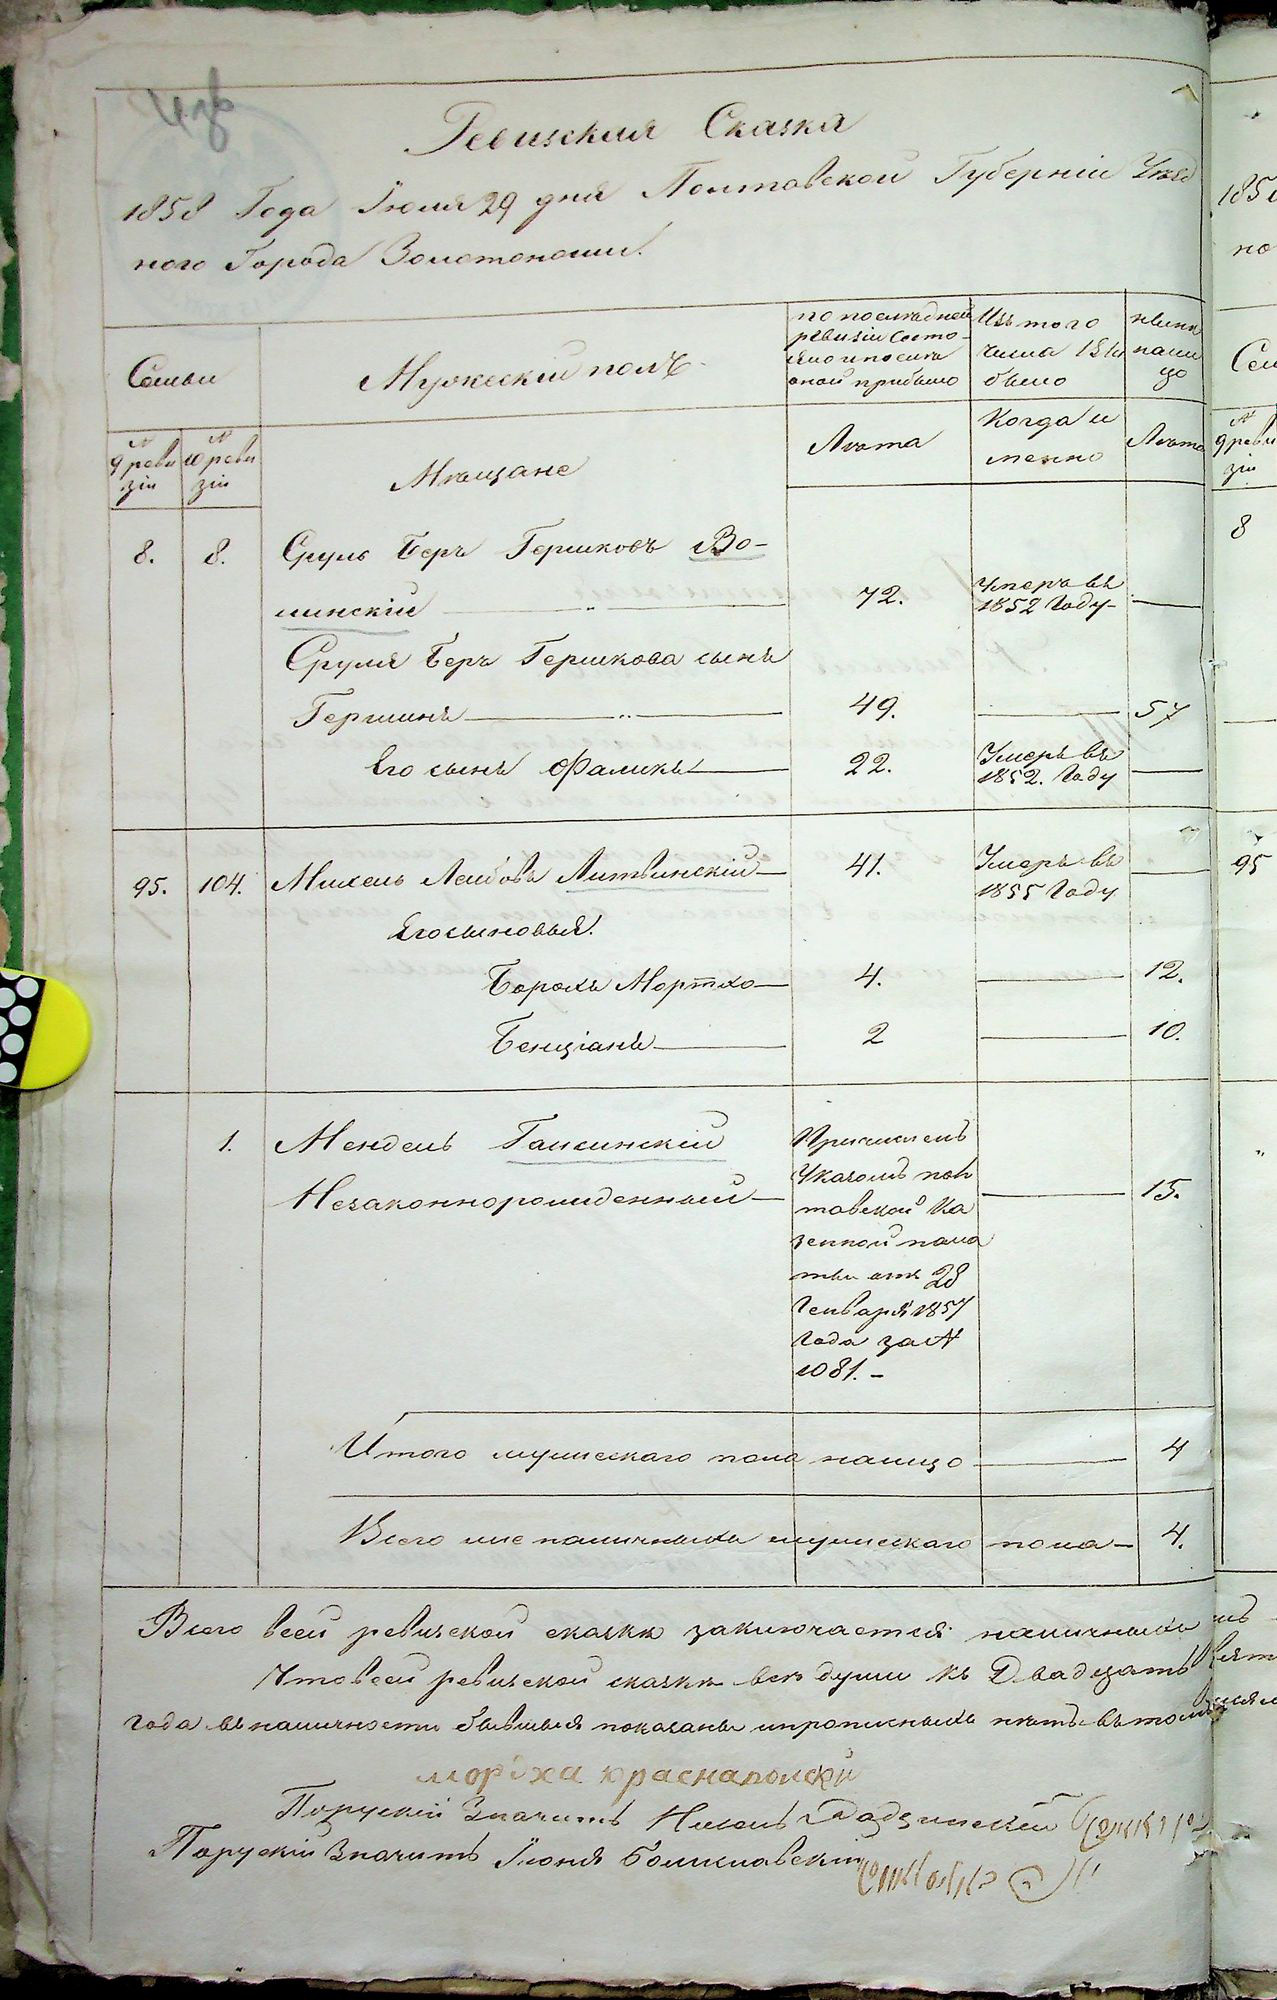 Ревизская Сказка
1858 Года Июля 29 дня Полтавской Губерніи Уезд
ного Города Золотоноши.
Семьи
Мужескій полъ
по последней
ревизіи состо-
яло и после
оной прибыло
Изъ того
числа
было
ныне
на ли
цо
№ 9 реви
зіи
№ 10 реви
зіи
Мещане
Лета
Когда и
менно
Лета
8. 8. Сруль Беръ Гершковъ Во-
линскій 72. Умеръ въ
1852 Году
Сруля Беръ Гершкова сынъ
Гершинъ 49. 57
Его сынъ Фаликъ 22. Умеръ въ
1852. Году
95. 104. Михель Лейбовъ Литвинскій 41. Умеръ въ
1855 Году
Его сыновья.
Борохъ Мортко 4. 12.
Бенціанъ 2 10.
1. Мендель Галсинскій
Незаконнорожденный 15.
Причисленъ
Указомъ пол
тавской Ка
зенной пала
ты отъ 28
Генваря 1857
Года за №
1081.
Итого мужескаго пола налицо 4
Всего наличныхъ мужескаго пола 4.
Всего всей ревизской сказке заключается наличныхъ
Что всей ревизской сказке все души къ Двадцать
года въ наличности бывшыя показаны и прописныхъ нетъ въ томъ
мордха краснаполски
По руский Значитъ
По руский Значитъ
1858
но
Сем
№
9 реви
зіи
8
95